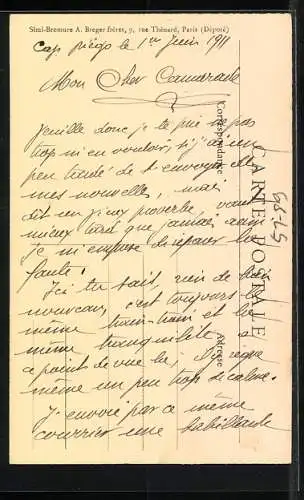 Simi-Bromure A. Breger frères, 9, rue Thénard, Paris (Déposé)
Cap Diégo le 1er Juin 1911
Mon Cher Camarade
Veuille donc je te prie ne pas
trop m'en vouloir si j'ai un
peu tardé de t'envoyer de
mes nouvelles, mais
dit un vieux proverbe, vaut
mieux tard que jamais aussi
je m'empose de réparer la
faute!
Ici tu sais, rien de bien
nouveau, c'est toujours le
même train-train et la
même tranquilité à
ce point de vue là, il règne
même un peu trop de calme.
J'envoie par ce même
courrier une babillarde
CARTE POSTALE
Correspondance
Adresse
57-85